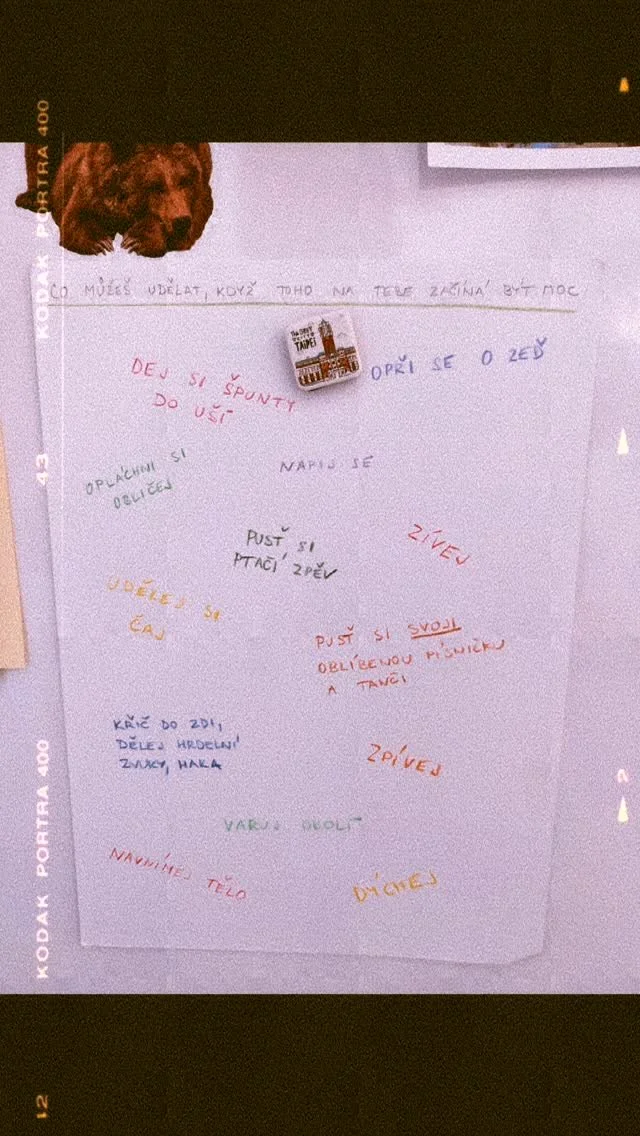 KODAK PORTRA 400
CO MŮŽEŠ UDĚLAT, KDYŽ TOHO NA TEBE ZAČÍNÁ BÝT MOC
TAIPEI
DEJ SI ŠPUNTY
DO UŠÍ
OPŘI SE O ZEĎ
OPLÁCHNI SI
OBLIČEJ
NAPIJ SE
43
PUSŤ SI
PTAČÍ ZPĚV
ZÍVEJ
UDĚLEJ SI
ČAJ
PUSŤ SI SVOJI
OBLÍBENOU PÍSNIČKU
A TANČI
KŘIČ DO ZDI,
DĚLEJ HRDELNÍ
ZVUKY, HAKA
ZPÍVEJ
2
VARUJ OKOLÍ
NAVNÍMEJ TĚLO
DÝCHEJ
KODAK PORTRA 400
12